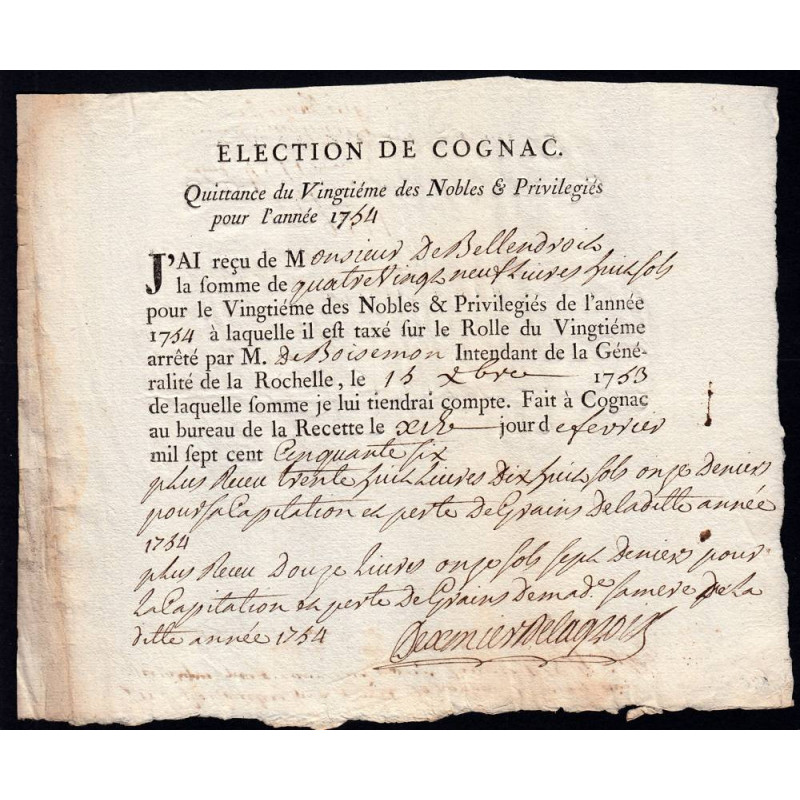 ELECTION DE COGNAC.
Quittance du Vingtiéme des Nobles & Privilegiés
pour l'année 1754
J'AI reçu de Monsieur De Bellendroit
la somme de quatre vingt neuf Livres huit sols
pour le Vingtiéme des Nobles & Privilegiés de l'année
1754 à laquelle il est taxé sur le Rolle du Vingtiéme
arrêté par M. De Boisemon Intendant de la Géné-
ralité de la Rochelle, le 15 xbre 1753
de laquelle somme je lui tiendrai compte. Fait à Cognac
au bureau de la Recette le jour de fevrier
mil sept cent Cinquante six
plus Receu trente huit Livres Dix huit sols onze Deniers
pour sa Capitation et perte De Grains De laditte année
1754
plus Receu Douze Livres onze sols sept Deniers pour
La Capitation et perte De Grains De mad.e sa mere De La
ditte année 1754